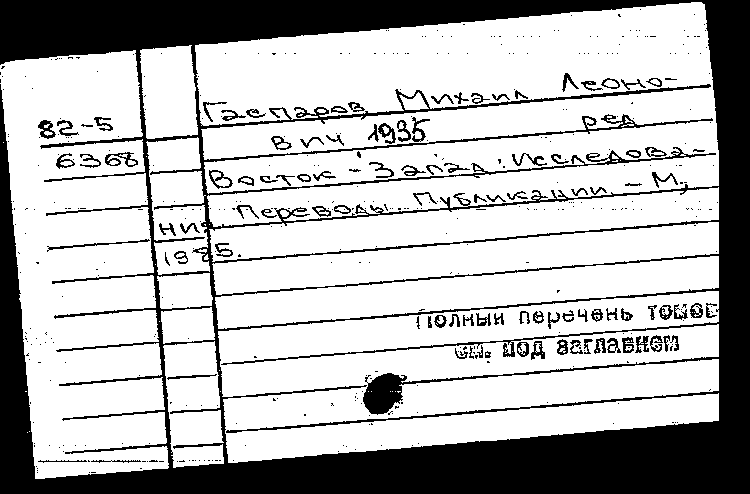 82-5
6368
Гаспаров, Михаил Леоно-
вич 1935 ред
Восток - Запад. Исследова-
ния. Переводы. Публикации - М.,
1985.
Полный перечень томов
см. под заглавием